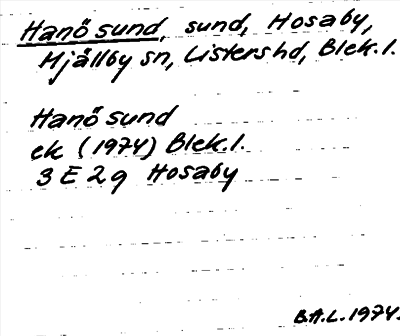 Hanö sund, sund, Hosaby,
Mjällby sn, Listershd, Blek.l.
Hanö sund
ek (1974) Blek.l.
3 E 2 g Hosaby
B.A.L. 1974.